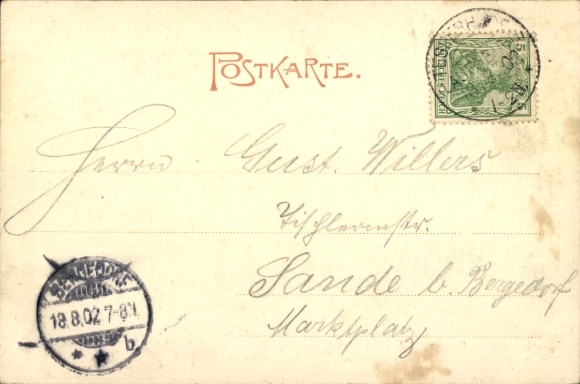 POSTKARTE.
5
Herrn Gust. Willers
Tischlermstr.
Sande b. Bergedorf
Marktplatz
BERGEDORF
18.8.02 7-8V.
* * b